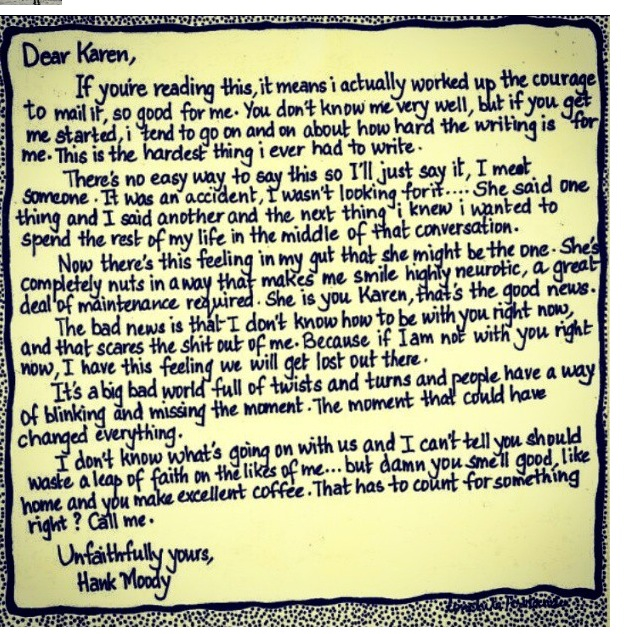 Dear Karen,
If you're reading this, it means i actually worked up the courage
to mail it, so good for me. You don't know me very well, but if you get
me started, i tend to go on and on about how hard the writing is for
me. This is the hardest thing i ever had to write.
There's no easy way to say this so I'll just say it, I meet
someone. It was an accident, I wasn't looking for it.... She said one
thing and I said another and the next thing i knew i wanted to
spend the rest of my life in the middle of that conversation.
Now there's this feeling in my gut that she might be the one. She's
completely nuts in a way that makes me smile highly neurotic, a great
deal of maintenance required. She is you Karen, that's the good news.
The bad news is that I don't know how to be with you right now,
and that scares the shit out of me. Because if I am not with you right
now, I have this feeling we will get lost out there.
It's a big bad world full of twists and turns and people have a way
of blinking and missing the moment. The moment that could have
changed everything.
I don't know what's going on with us and I can't tell you should
waste a leap of faith on the likes of me... but damn you smell good, like
home and you make excellent coffee. That has to count for something
right? Call me.
Unfaithfully yours,
Hank Moody